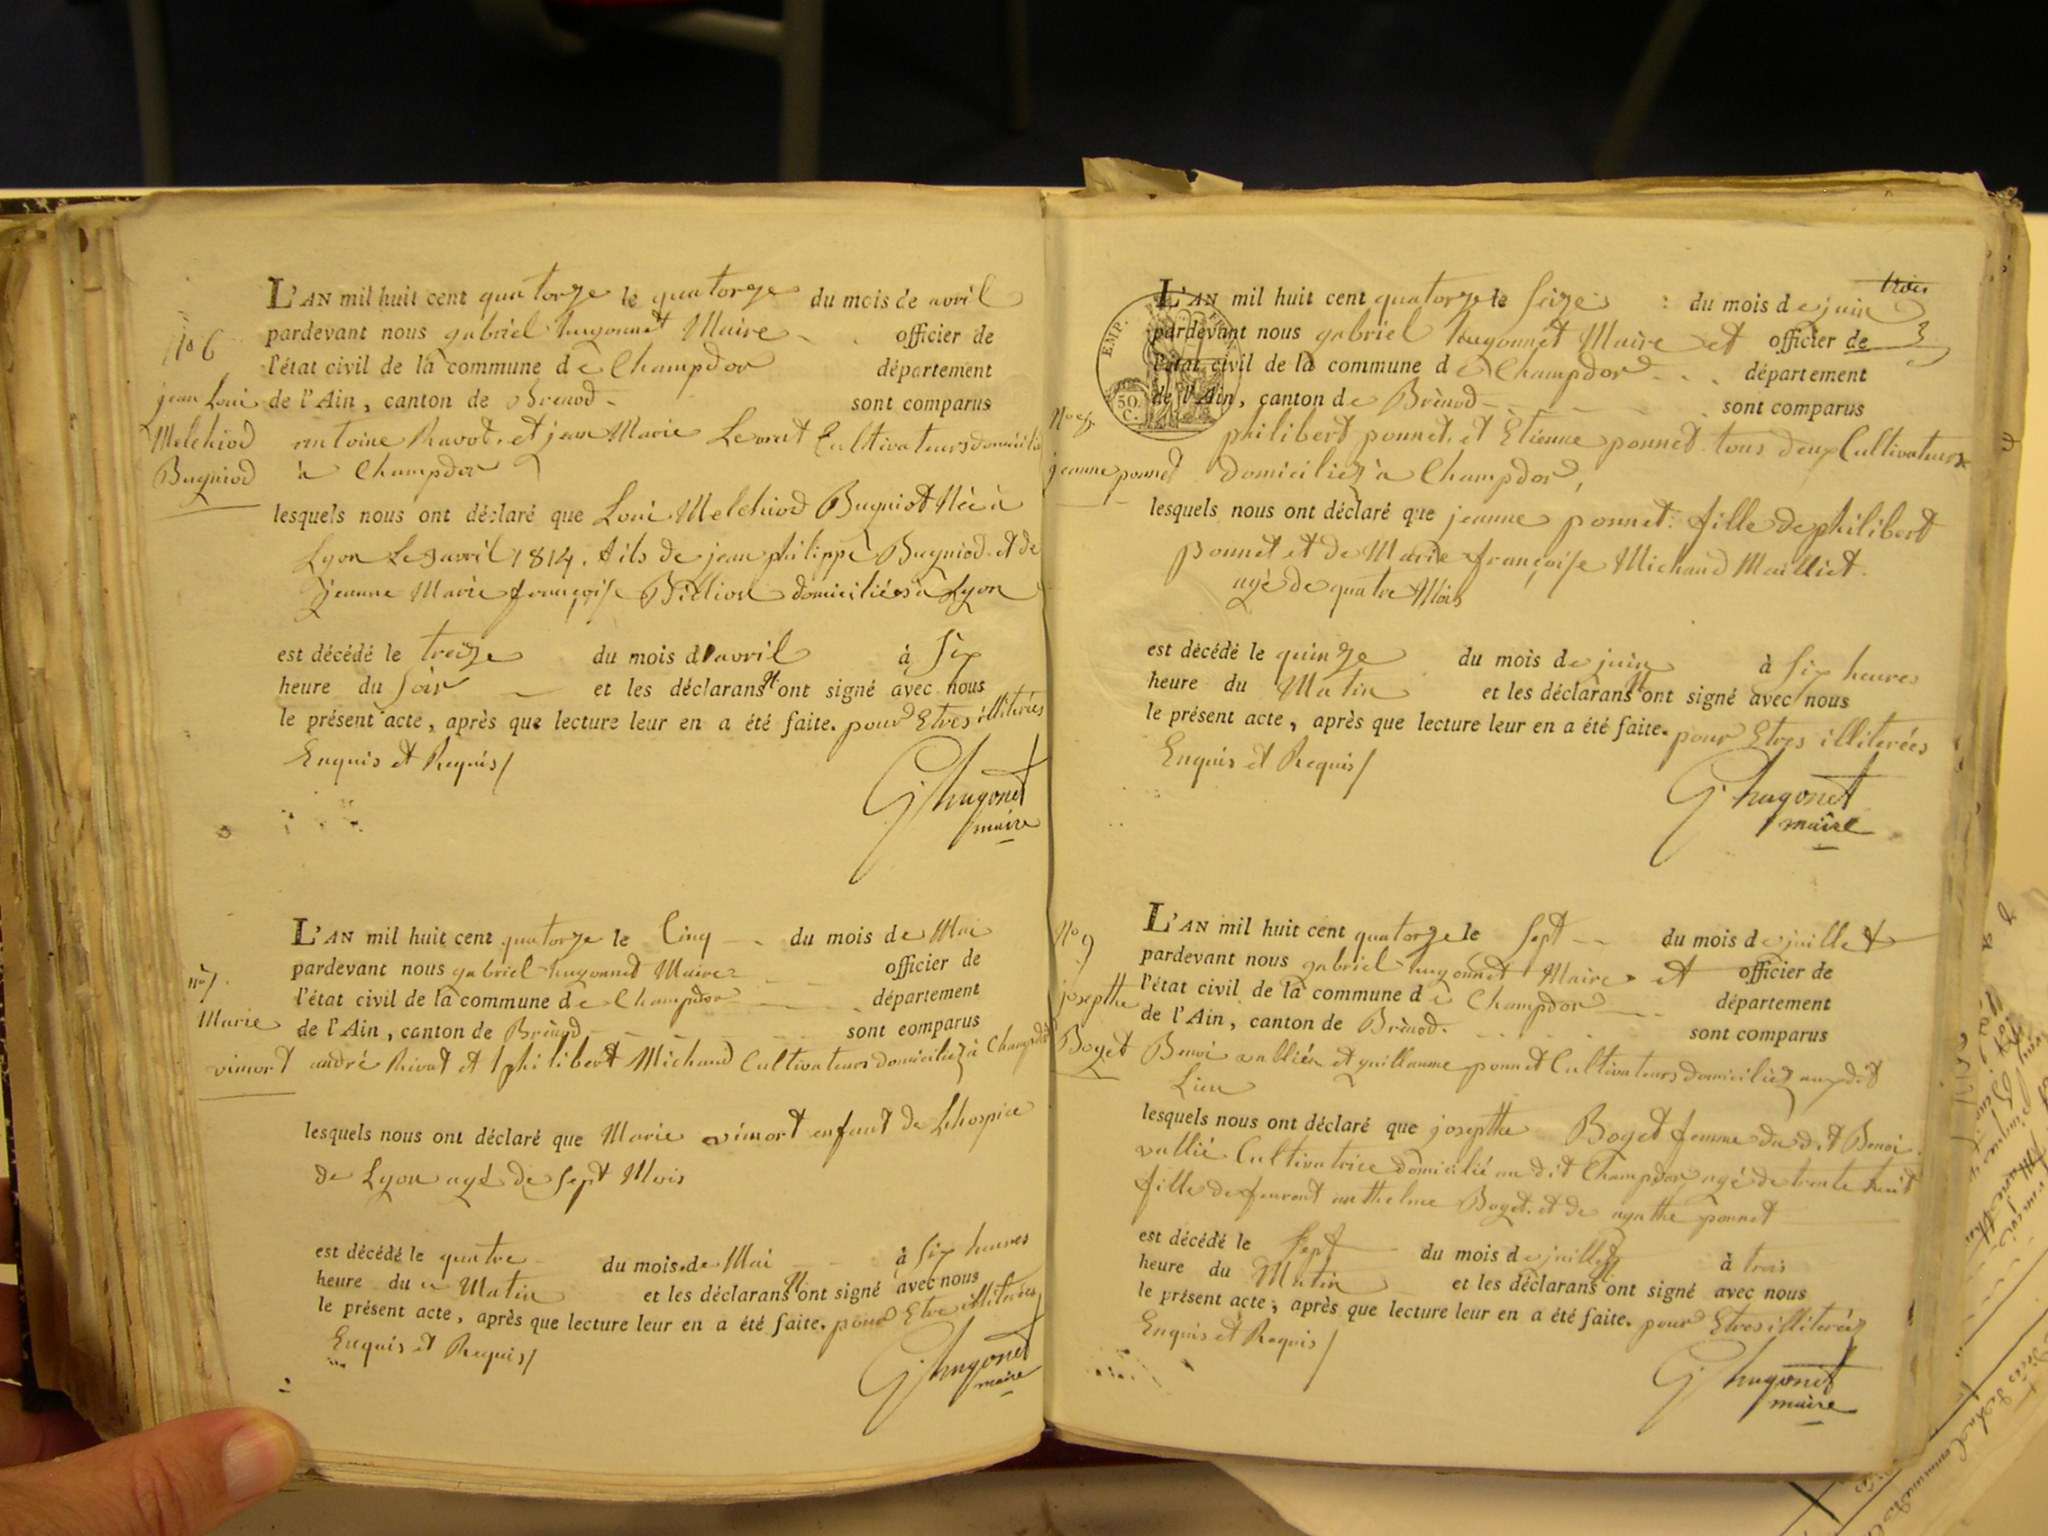 L'AN mil huit cent quatorze le quatorze du mois de avril
pardevant nous gabriel hugonnet Maire officier de
l'état civil de la commune de Champdor département
de l'Ain, canton de Brénod sont comparus
antoine Ravot et jean Marie Levrat Cultivateurs domicilié
à Champdor
lesquels nous ont déclaré que Loui Melchiod Bugniot Née à
Lyon Le 9 avril 1814. fils de jean philippe Bugniod et de
jeanne Marie françoise domiciliés à Lyon
est décédé le treize du mois d'avril à Six
heure du Soir et les déclarans n'ont signé avec nous
le présent acte, après que lecture leur en a été faite. pour Etres illiterées
Enquis et Requis/
G. hugonet
maire
No 6
jean Loui
Melchiod
Bugniod
L'AN mil huit cent quatorze le Cinq du mois de Mai
pardevant nous gabriel hugonnet Maire officier de
l'état civil de la commune de Champdor département
de l'Ain, canton de Brénod sont comparus
andré Rivat et philibert Michaud Cultivateurs domiciliez à Champdor
lesquels nous ont déclaré que Marie vimort enfant de Lhospice
de Lyon agé de Sept Mois
est décédé le quatre du mois de Mai à Six heures
heure du Matin et les déclarans n'ont signé avec nous
le présent acte, après que lecture leur en a été faite. pour Etre illiterées
Enquis et Requis/
G. hugonet
maire
no 7.
Marie
vimort
trois
3
EMP.
50.
C.
L'AN mil huit cent quatorze le Seize du mois de juin
pardevant nous gabriel hugonnet Maire et officier de
l'état civil de la commune de Champdor département
de l'Ain, canton de Brénod sont comparus
philibert ponnet et Etienne ponnet tous deux Cultivateurs
domiciliez à Champdor,
lesquels nous ont déclaré que jeanne ponnet fille de philibert
ponnet et de Marie françoise Michaud Mailliet.
agé de quatre Mois
est décédé le quinze du mois de juin à Six heures
heure du Matin et les déclarans n'ont signé avec nous
le présent acte, après que lecture leur en a été faite. pour Etres illiterées
Enquis et Requis/
G. hugonet
maire
No 8
jeanne ponnet
L'AN mil huit cent quatorze le Sept du mois de juillet
pardevant nous gabriel hugonnet Maire et officier de
l'état civil de la commune de Champdor département
de l'Ain, canton de Brénod. sont comparus
Benoi vallié et guillaume ponnet Cultivateurs domiciliez audit
Lieu
lesquels nous ont déclaré que josepthe Boget femme du dit Benoi
vallié Cultivatrice domicilié au dit Champdor agé de trente huit
fille de feu anthelme Boget et de agathe ponnet
est décédé le Sept du mois de juillet à trois
heure du Matin et les déclarans n'ont signé avec nous
le présent acte, après que lecture leur en a été faite. pour Etres illiterées
Enquis et Requis/
G. hugonet
maire
No 9
josepthe
Boget